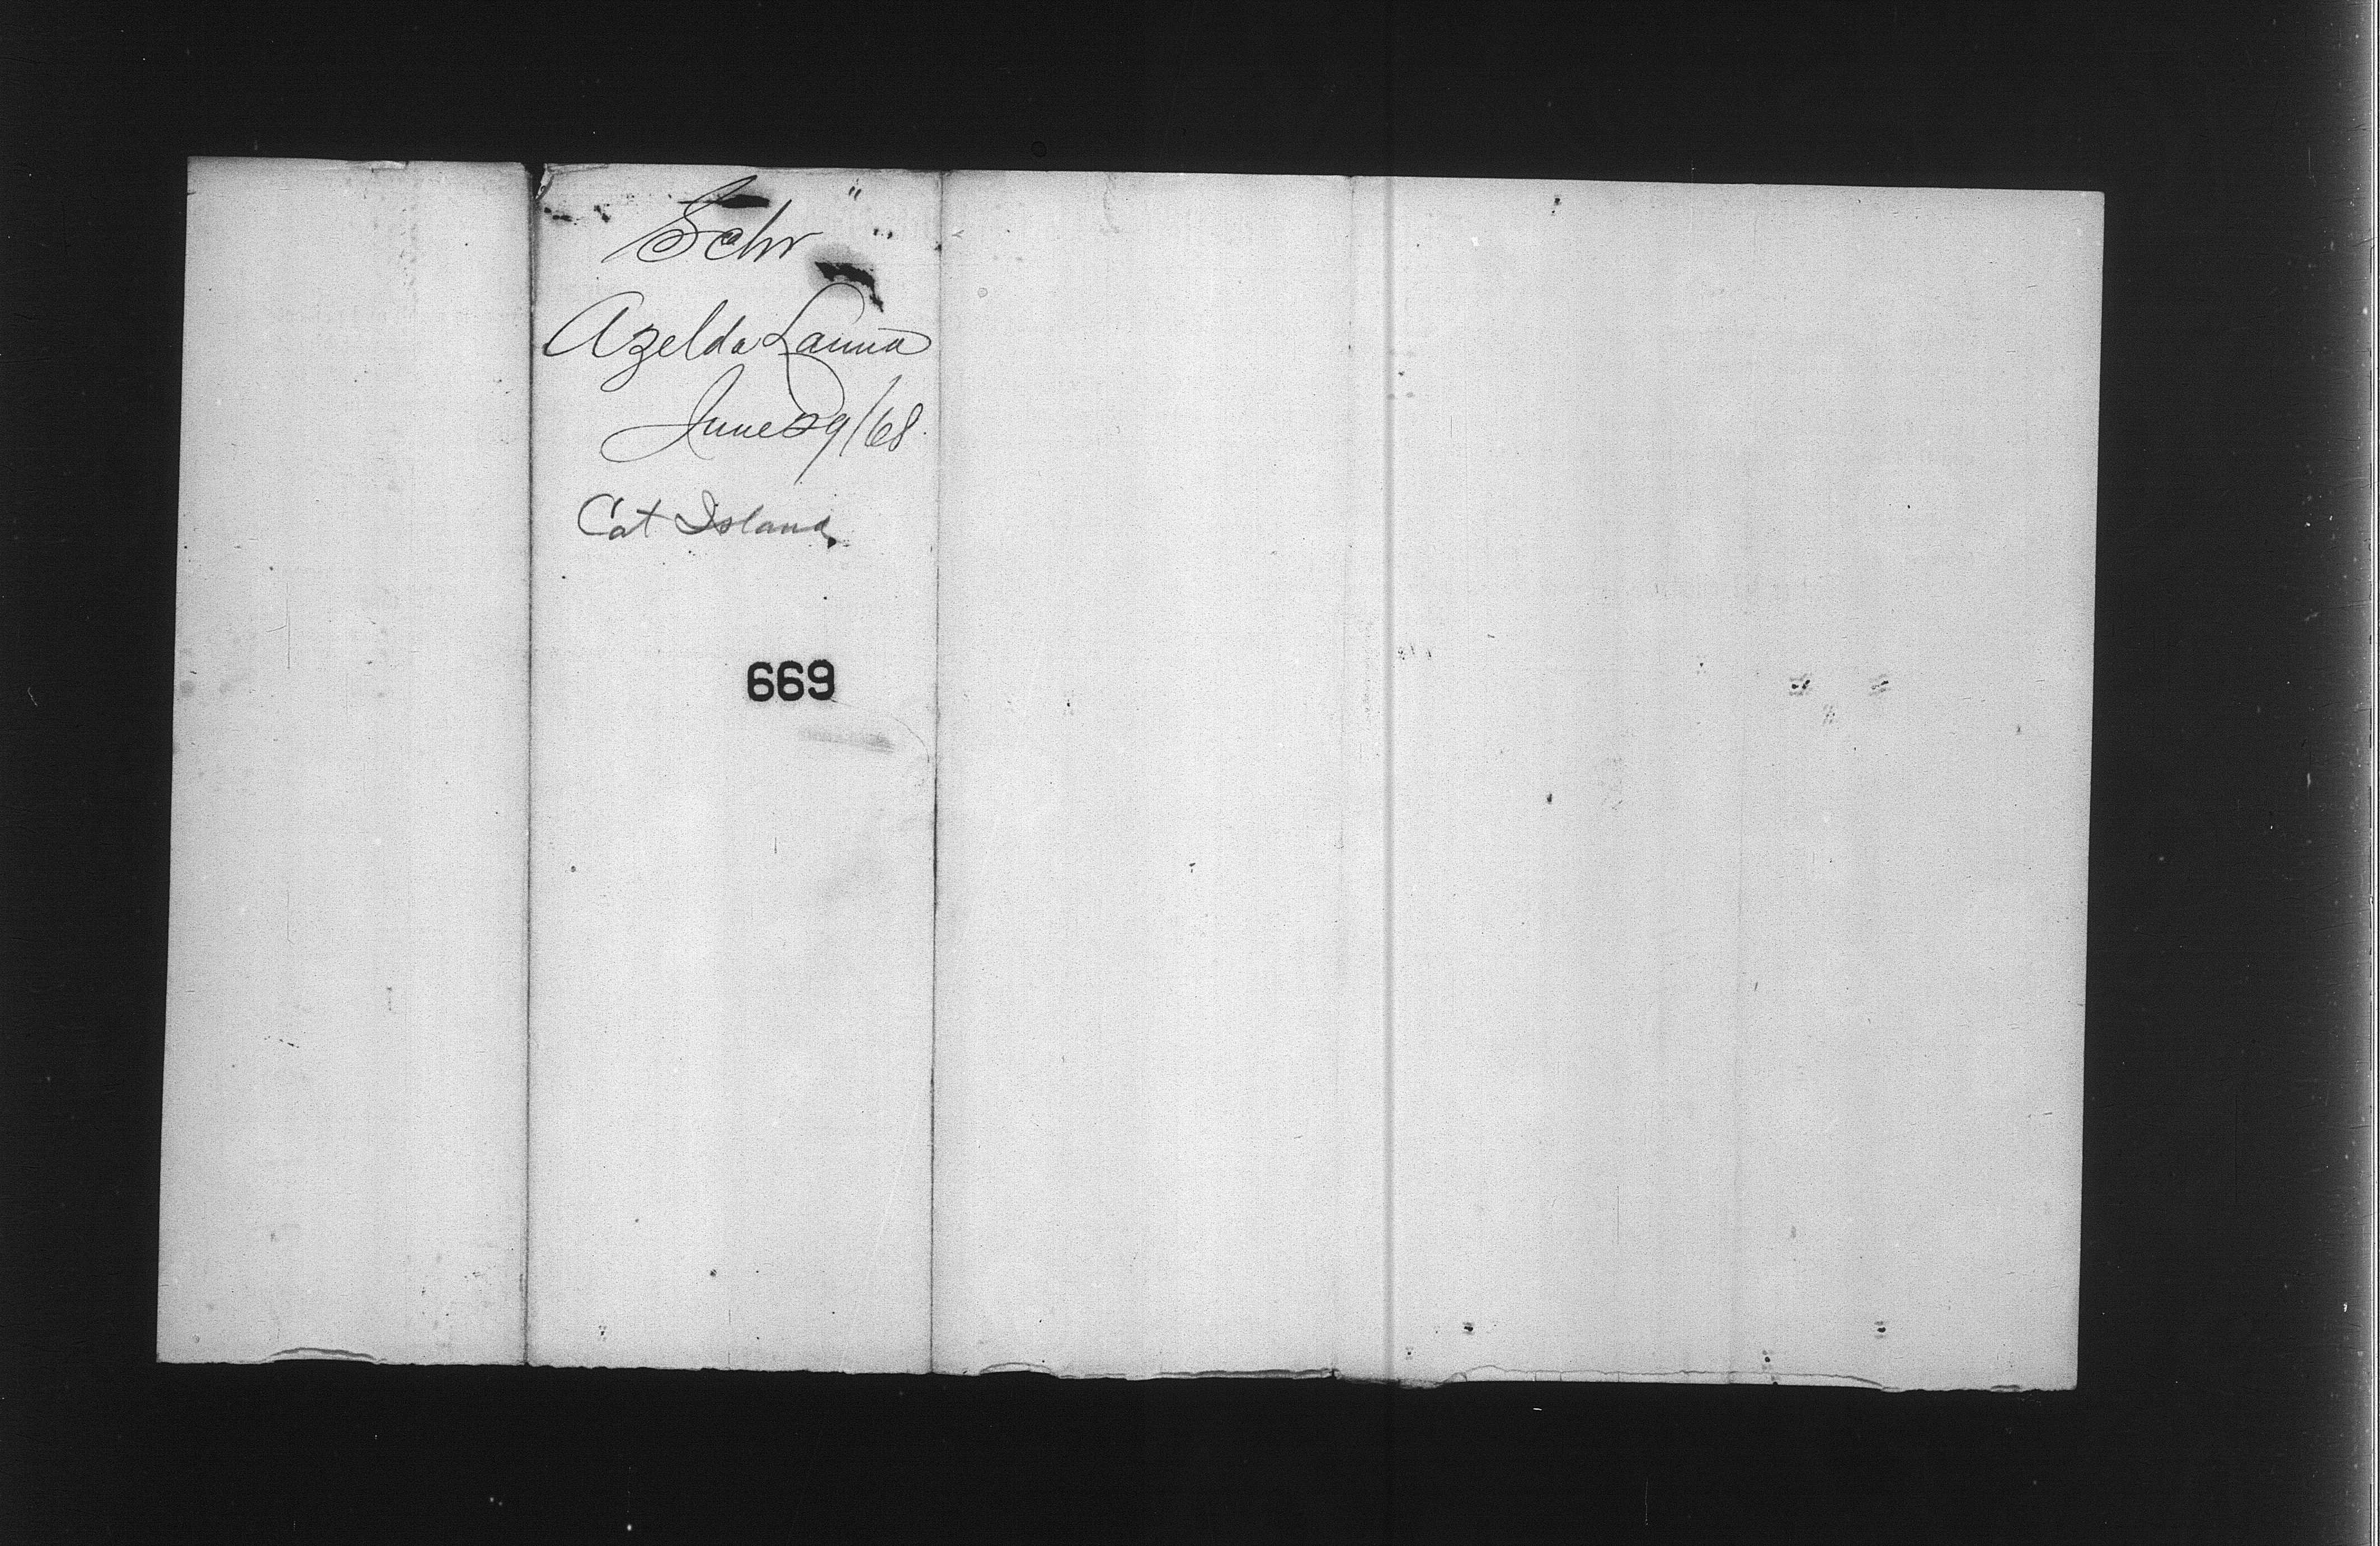 Schr
Azelda Launa
June 29/68
Cat Island
669